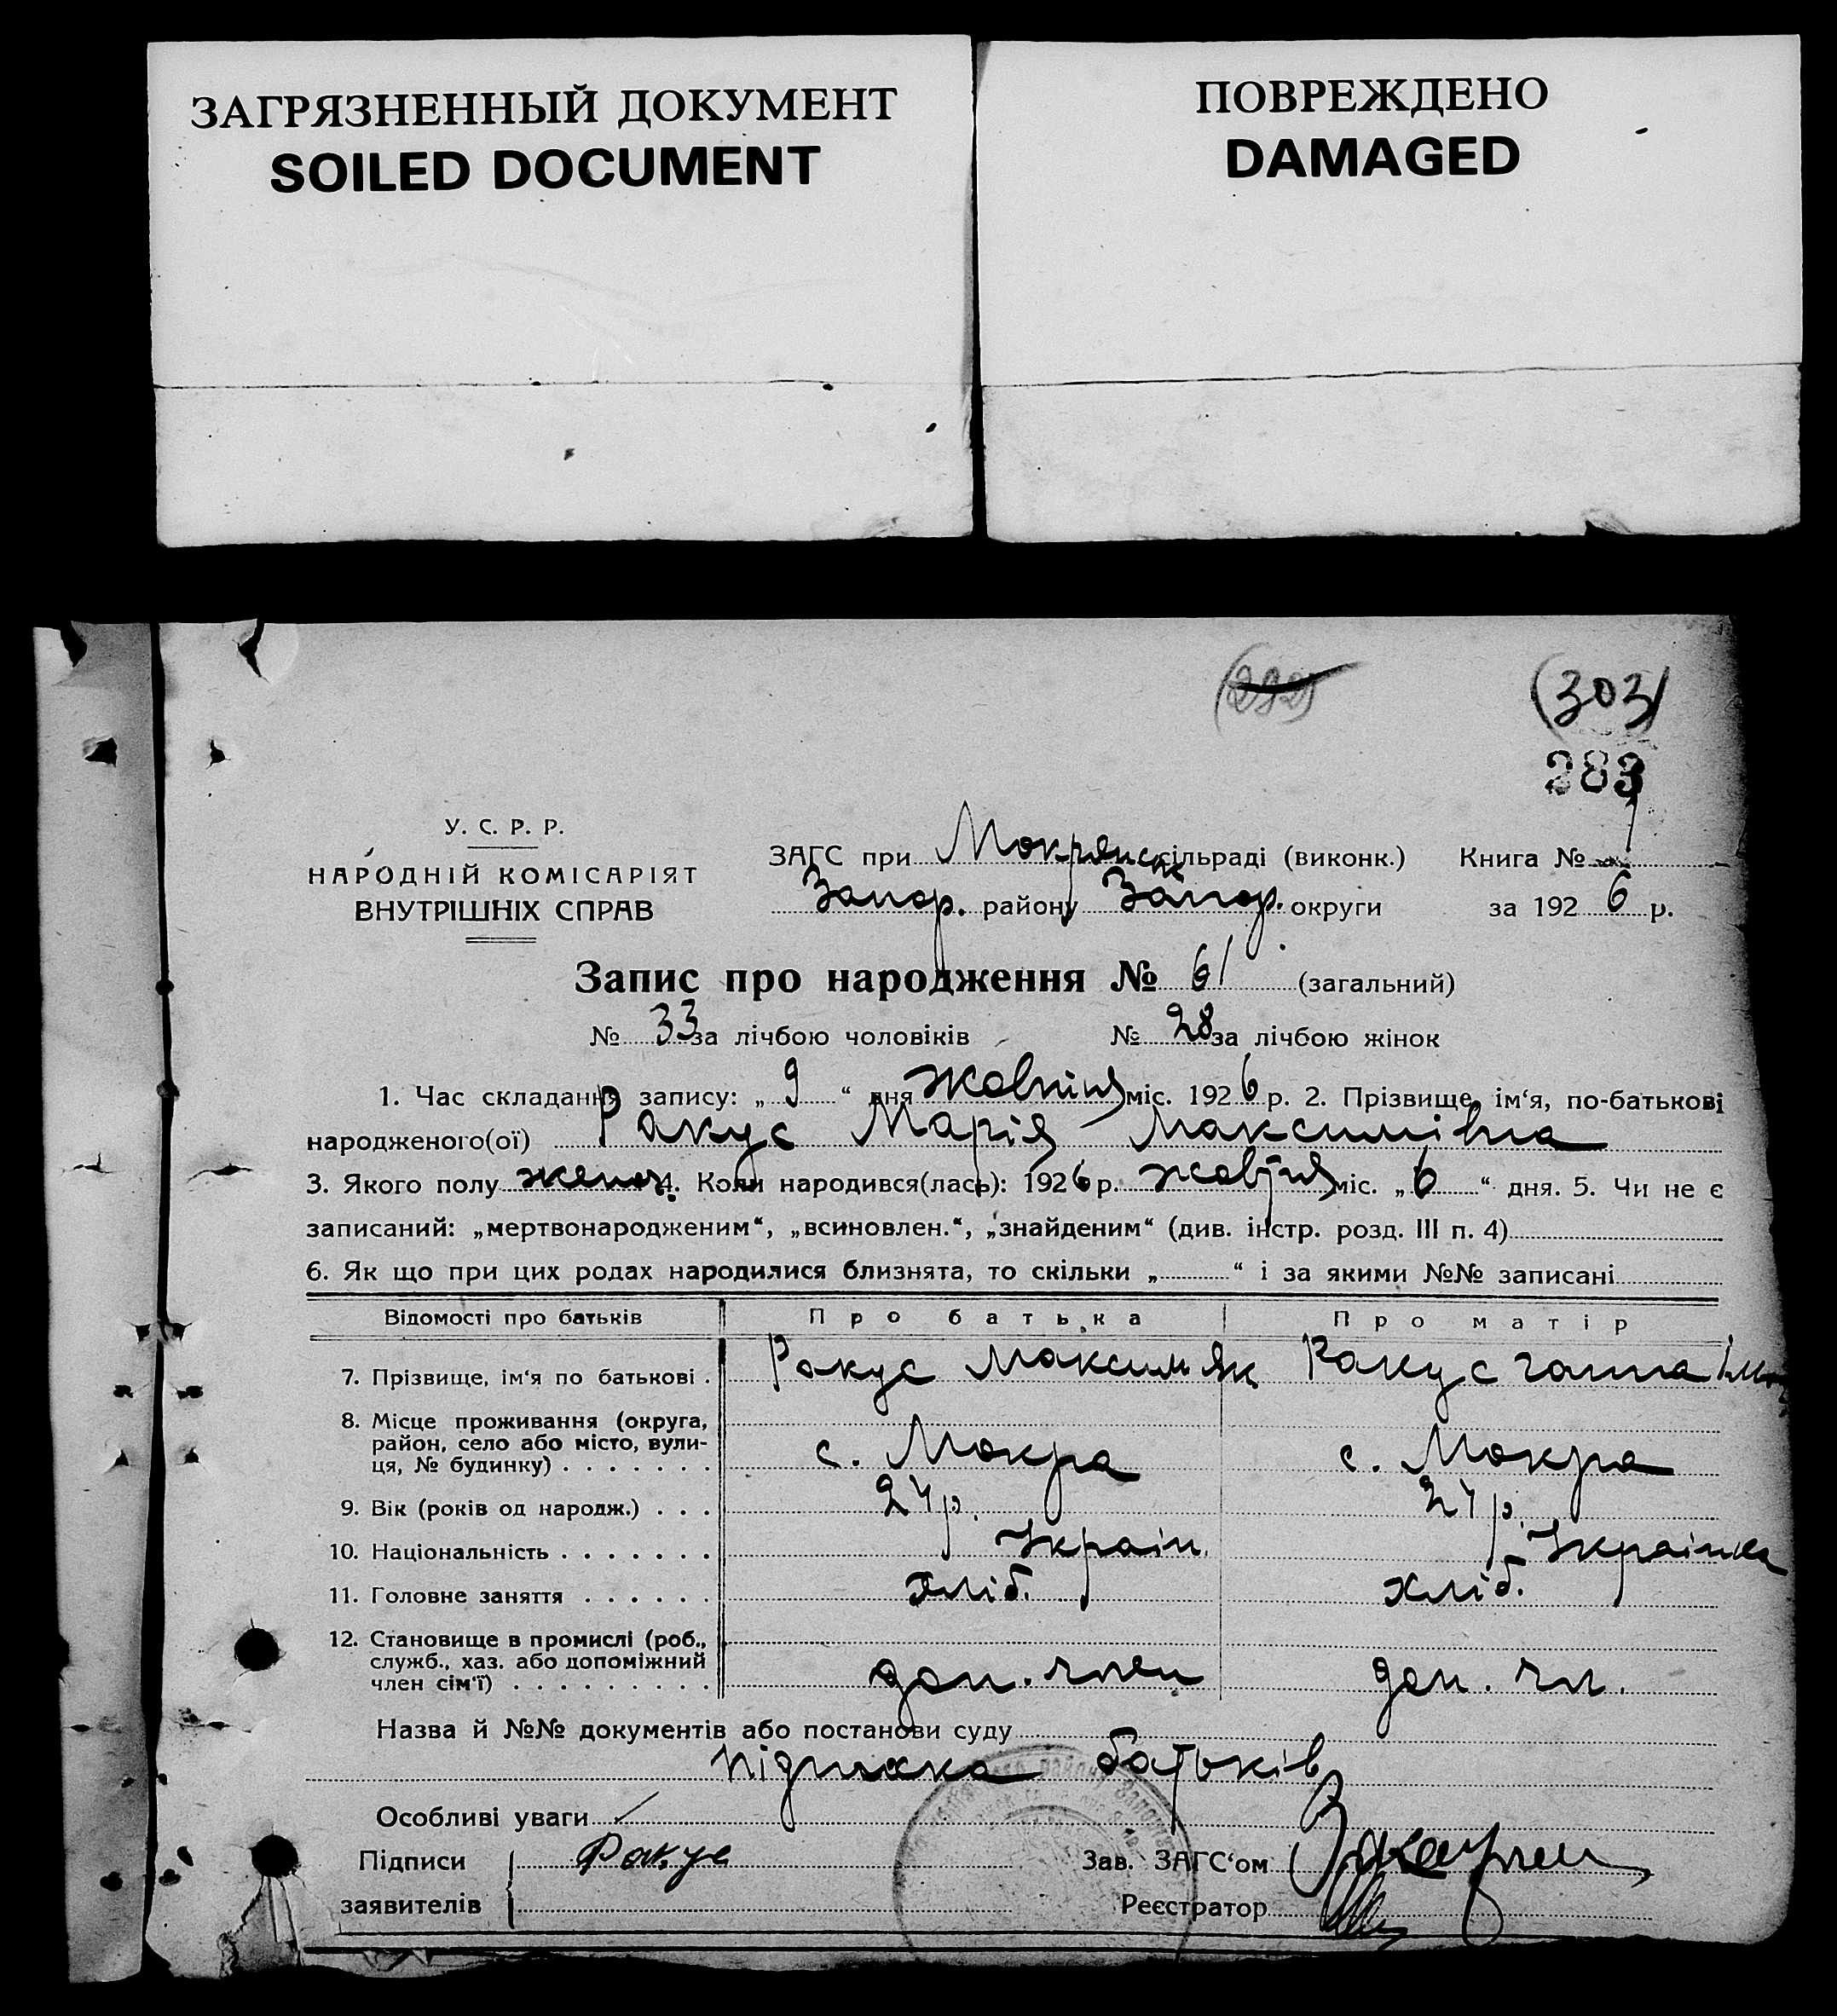 ЗАГРЯЗНЕННЫЙ ДОКУМЕНТ
SOILED DOCUMENT
ПОВРЕЖДЕНО
DAMAGED
(303)
283
У. С. Р. Р.
НАРОДНІЙ КОМІСАРІЯТ
ВНУТРІШНІХ СПРАВ
ЗАГС при Мокрянск сільраді (виконк.) Книга № 1
Запор. району Запор. округи за 1926 р.
Запис про народження № 61 (загальний)
№ 33 за лічбою чоловіків № 28 за лічбою жінок
1. Час складання запису: „ 9 “ дня жовтня міс. 1926 р. 2. Прізвище, ім‘я, по-батькові
народженого(ої) Ракус Марія Максимівна
3. Якого полу женоч. 4. Коли народився(лась): 1926 р. жовтня міс. „ 6 “ дня. 5. Чи не є
записаний: „мертвонародженим“, „всиновлен.“, „знайденим“ (див. інстр. розд. III п. 4)
6. Як що при цих родах народилися близнята, то скільки „ “ і за якими №№ записані
Відомості про батьків Про батька Про матір
7. Прізвище, ім‘я по батькові . Ракус Максим Як Ракус Ганна
8. Місце проживання (округа,
район, село або місто, вули-
ця, № будинку) . . . . . . . с. Мокра с. Мокра
9. Вік (років од народж.) . . . 24 р. 24 р.
10. Національність . . . . . . . Україн. Українка
11. Головне заняття . . . . . . хліб. хліб.
12. Становище в промислі (роб.,
служб., хаз. або допоміжний
член сім‘ї) . . . . . . . . . доп. член доп. чл.
Назва й №№ документів або постанови суду
підписка батьків
Особливі уваги
Підписи Ракус Зав. ЗАГС‘ом
заявителів Реєстратор